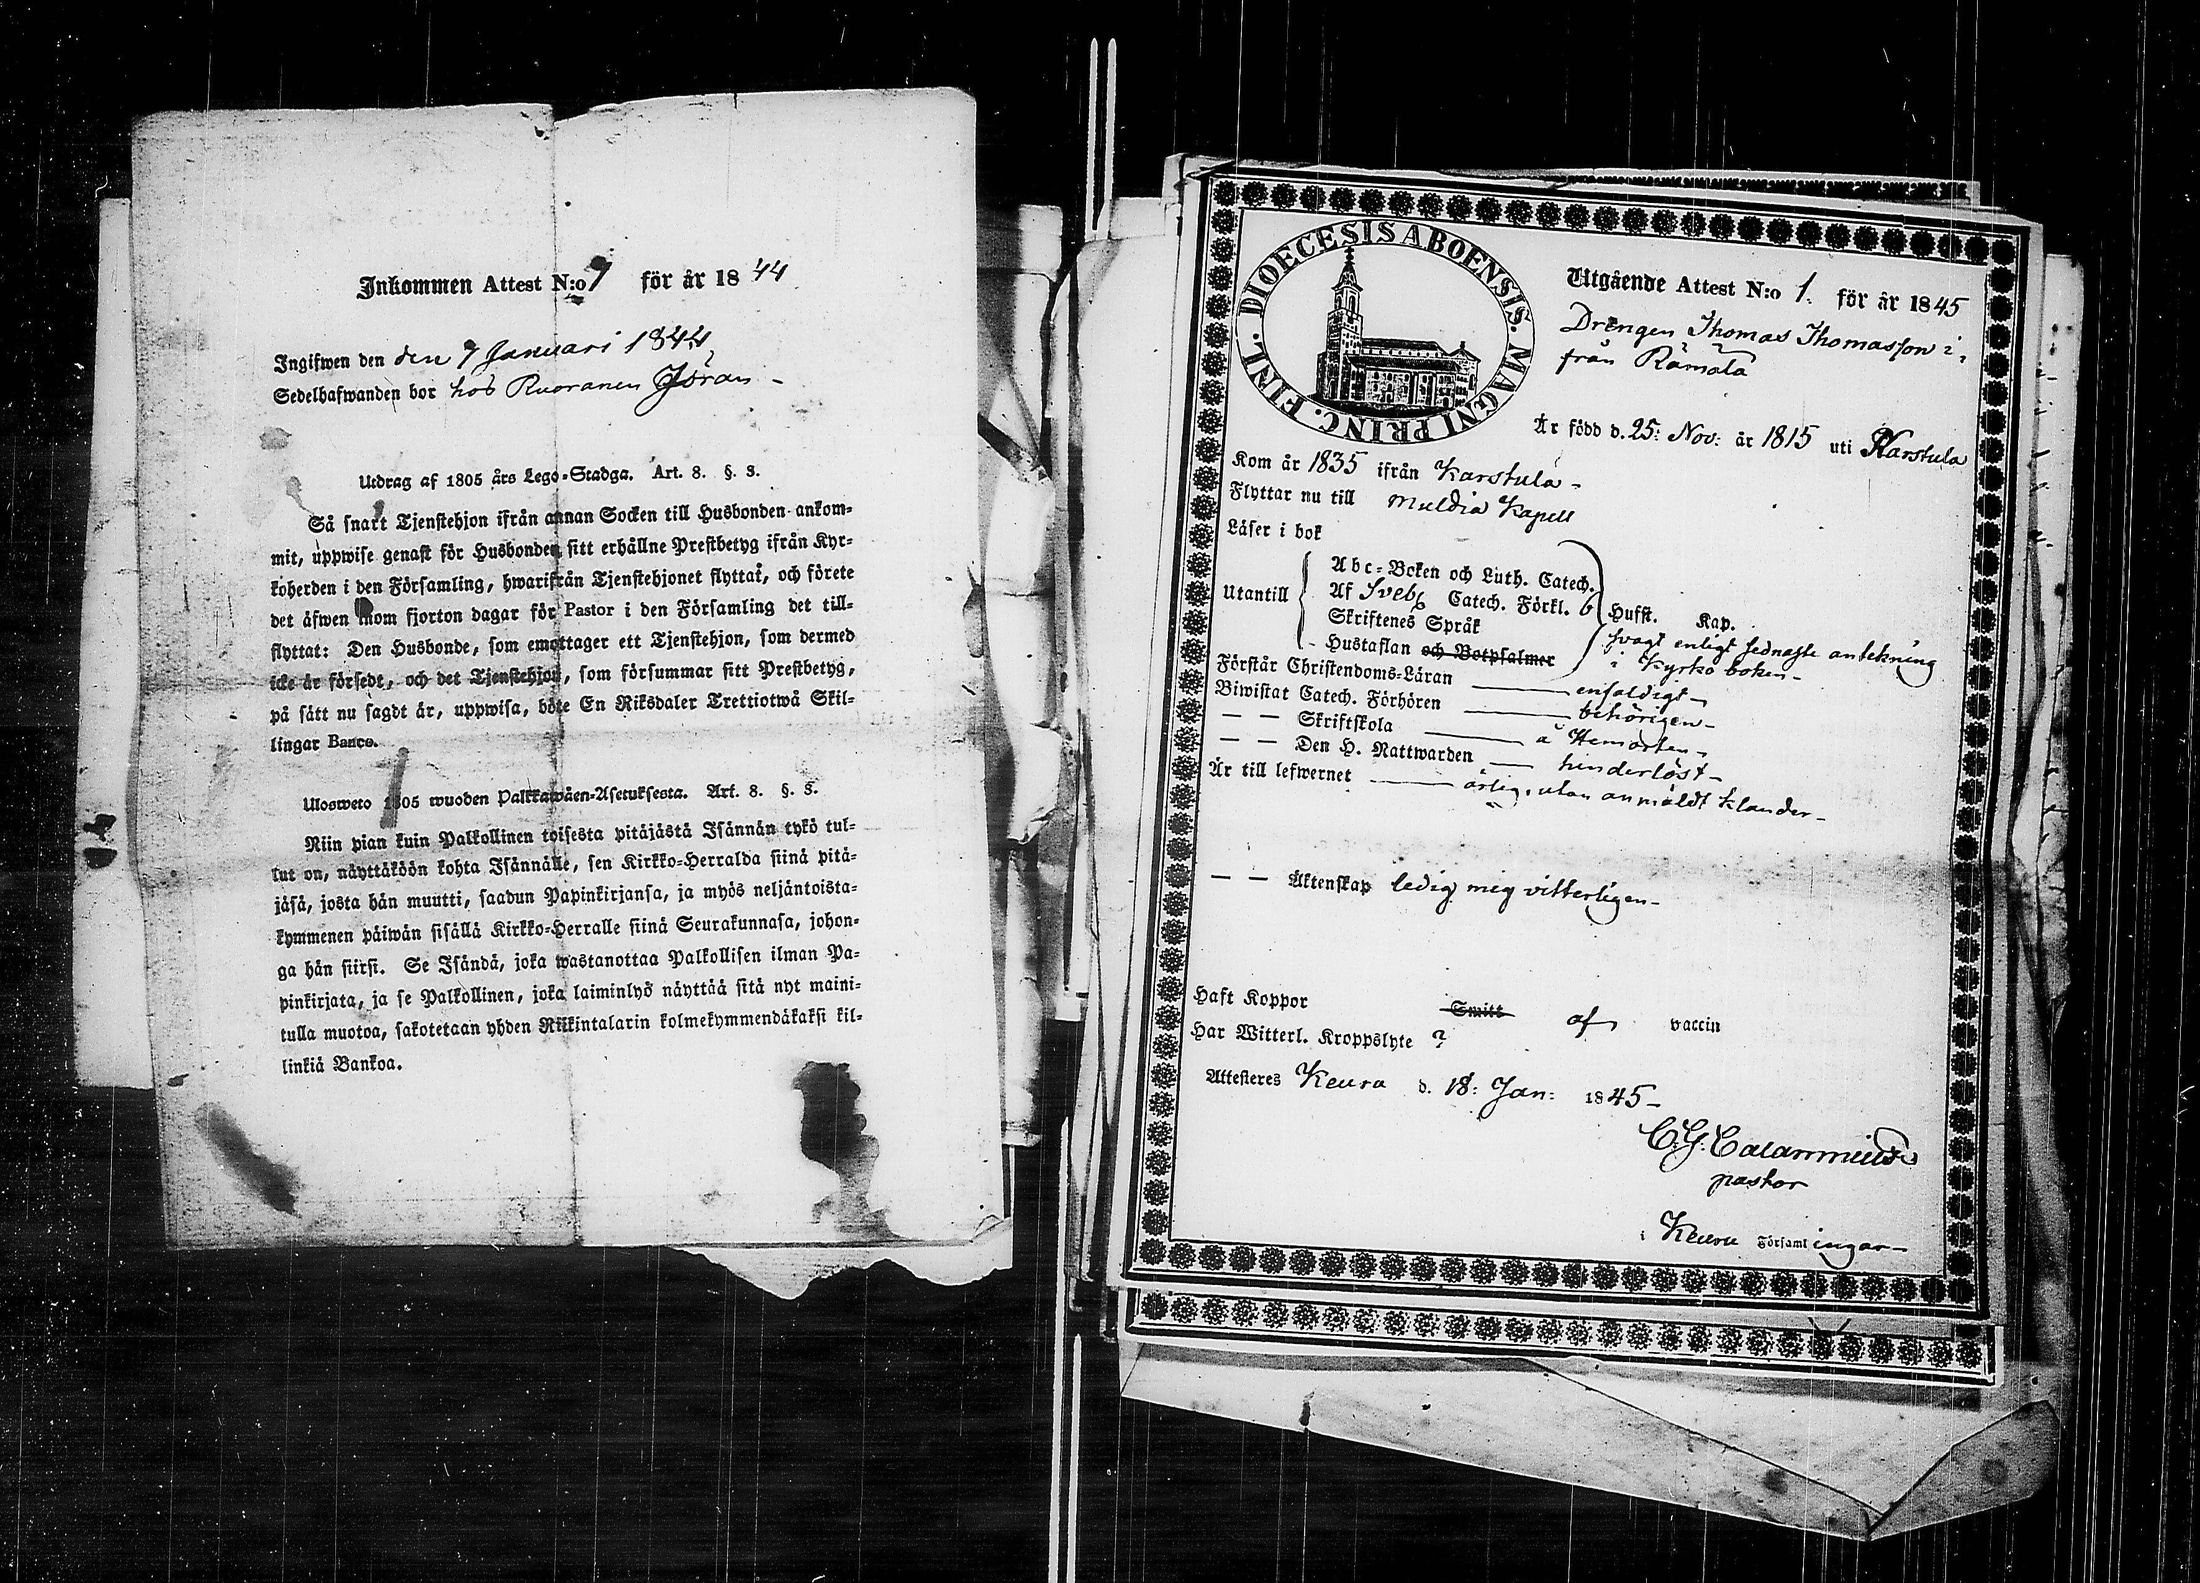 Inkommen Attest N:o 7 för år 1844
Ingifwen den den 7 Januari 1844
Sedelhafwanden bor hos Ruoranen Jöran -
Utdrag af 1805 års Lego-Stadga. Art. 8. §. 3.
Så snart Tjenstehjon ifrån annan Socken till Husbonden ankom-
mit, uppwise genast för Husbonden sitt erhållne Prestbetyg ifrån Kyr-
koherden i den Församling, hwarifrån Tjenstehjonet flyttat, och förete
det äfwen inom fjorton dagar för Pastor i den Församling det till-
flyttat: Den Husbonde, som emottager ett Tjenstehjon, som dermed
icke är försedt, och det Tjenstehjon, som försummar sitt Prestbetyg,
på sätt nu sagdt är, uppwisa, böte En Riksdaler Trettiotwå Skil-
lingar Banco.
Ulosweto 1805 wuoden Palkkawäen-Asetuksesta. Art. 8. §. 3.
Niin pian kuin Palkollinen toisesta pitäjästä Isännän tykö tul-
lut on, näyttäköön kohta Isännälle, sen Kirkko-Herralda siinä pitä-
jäsä, josta hän muutti, saadun Papinkirjansa, ja myös neljäntoista-
kymmenen päiwän sisällä Kirkko-Herralle siinä Seurakunnasa, johon-
ga hän siirsi. Se Isändä, joka wastanottaa Palkollisen ilman Pa-
pinkirjata, ja se Palkollinen, joka laiminlyö näyttää sitä nyt maini-
tulla muotoa, sakotetaan yhden Riikintalarin kolmekymmendäkaksi kil-
linkiä Bankoa.
DIOECESIS ABOENSIS. MAGNI PRINC. FINL.
Utgående Attest N:o 1. för år 1845
Drengen Thomas Thomasson i
från Rämälä
Är född d. 25: Nov: år 1815 uti Karstula
Kom år 1835 ifrån Karstula -
Flyttar nu till Muldia Kapell
Läser i bok
Utantill
Abc-Boken och Luth. Catech.
Af Sveb Catech. Förkl.
Skriftenes Språk
Hustaflan och Botpsalmer
Husst. Kap.
svagt enligt sednaste antekning
i Kyrko boken -
Förstår Christendoms-Läran enfaldigt -
Biwistat Catech. Förhören behörigen -
— — Skriftskola å Hemorten -
— — Den H. Nattwarden hinderlöst -
Är till lefwernet ärlig, utan anmäldt klander -
— — Äktenskap ledig mig vitterligen -
Haft Koppor Smitt af vaccin
Har Witterl. Kroppslyte ?
Attesteres Keuru d. 18: Jan: 1845 -
C. G. Calamnius
pastor
i Keuru Församlingar -